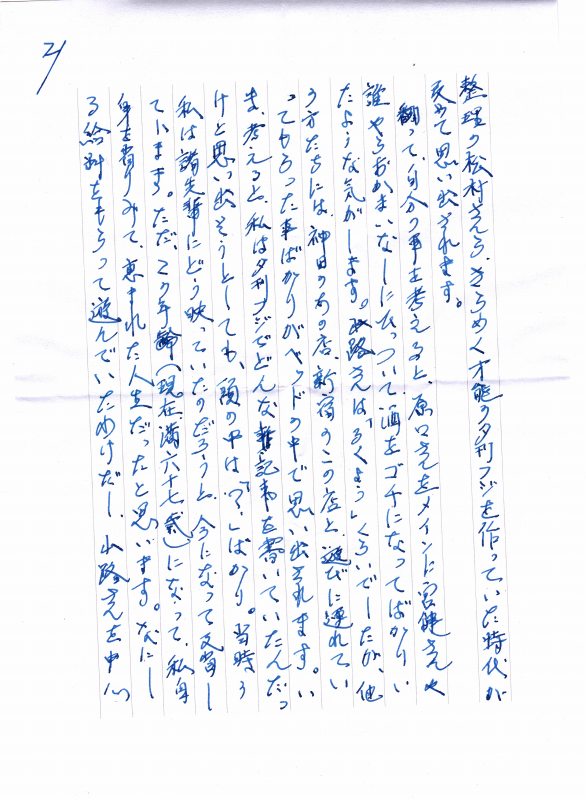 21
整理の松村さんら、きらめく才能の夕刊フジを作っていた時代が
改めて思い出されます。
翻って、自分の事を考えると、原口さんをメインに宮健さんや
誰やらおかまいなしにひっついて、酒をゴチになってばかりい
たような気がします。山路さんは「ろくよう」くらいでしたが、他
の方たちには、神田のあの店、新宿のこの店と、遊びに連れてい
ってもらった事ばかりがベッドの中で思い出されます。い
ま、考えると、私は夕刊フジでどんな雑記事を書いていたんだっ
けと思い出そうとしても、頭の中は「？」ばかり。当時の
私は諸先輩にどう映っていたのだろうと、今になって反省し
ています。ただ、この年齢（現在満六十七歳）になって、私自
身を省りみて、恵まれた人生だったと思います。なにし
る給料をもらって遊んでいたわけだし、山路さんを中心